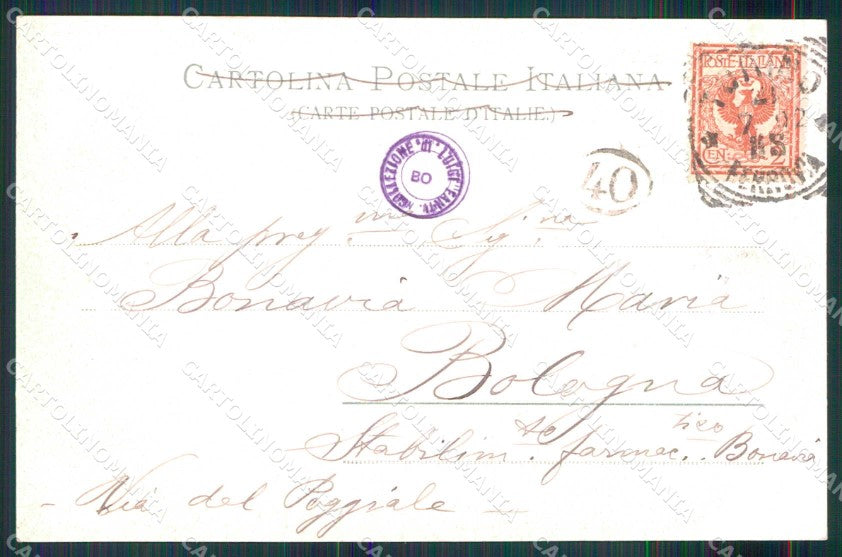 CARTOLINA POSTALE ITALIANA
(CARTE POSTALE D'ITALIE.)
POSTE ITALIANE
CENT. 2
COLLEZIONE "DI LUIGI
BO
40
Alla preg.ma Sig.na
Bonavià Maria
Bologna
Stabilim.to farmac.tico Bonavià
Via del Poggiale
CARTOLINOMANIA